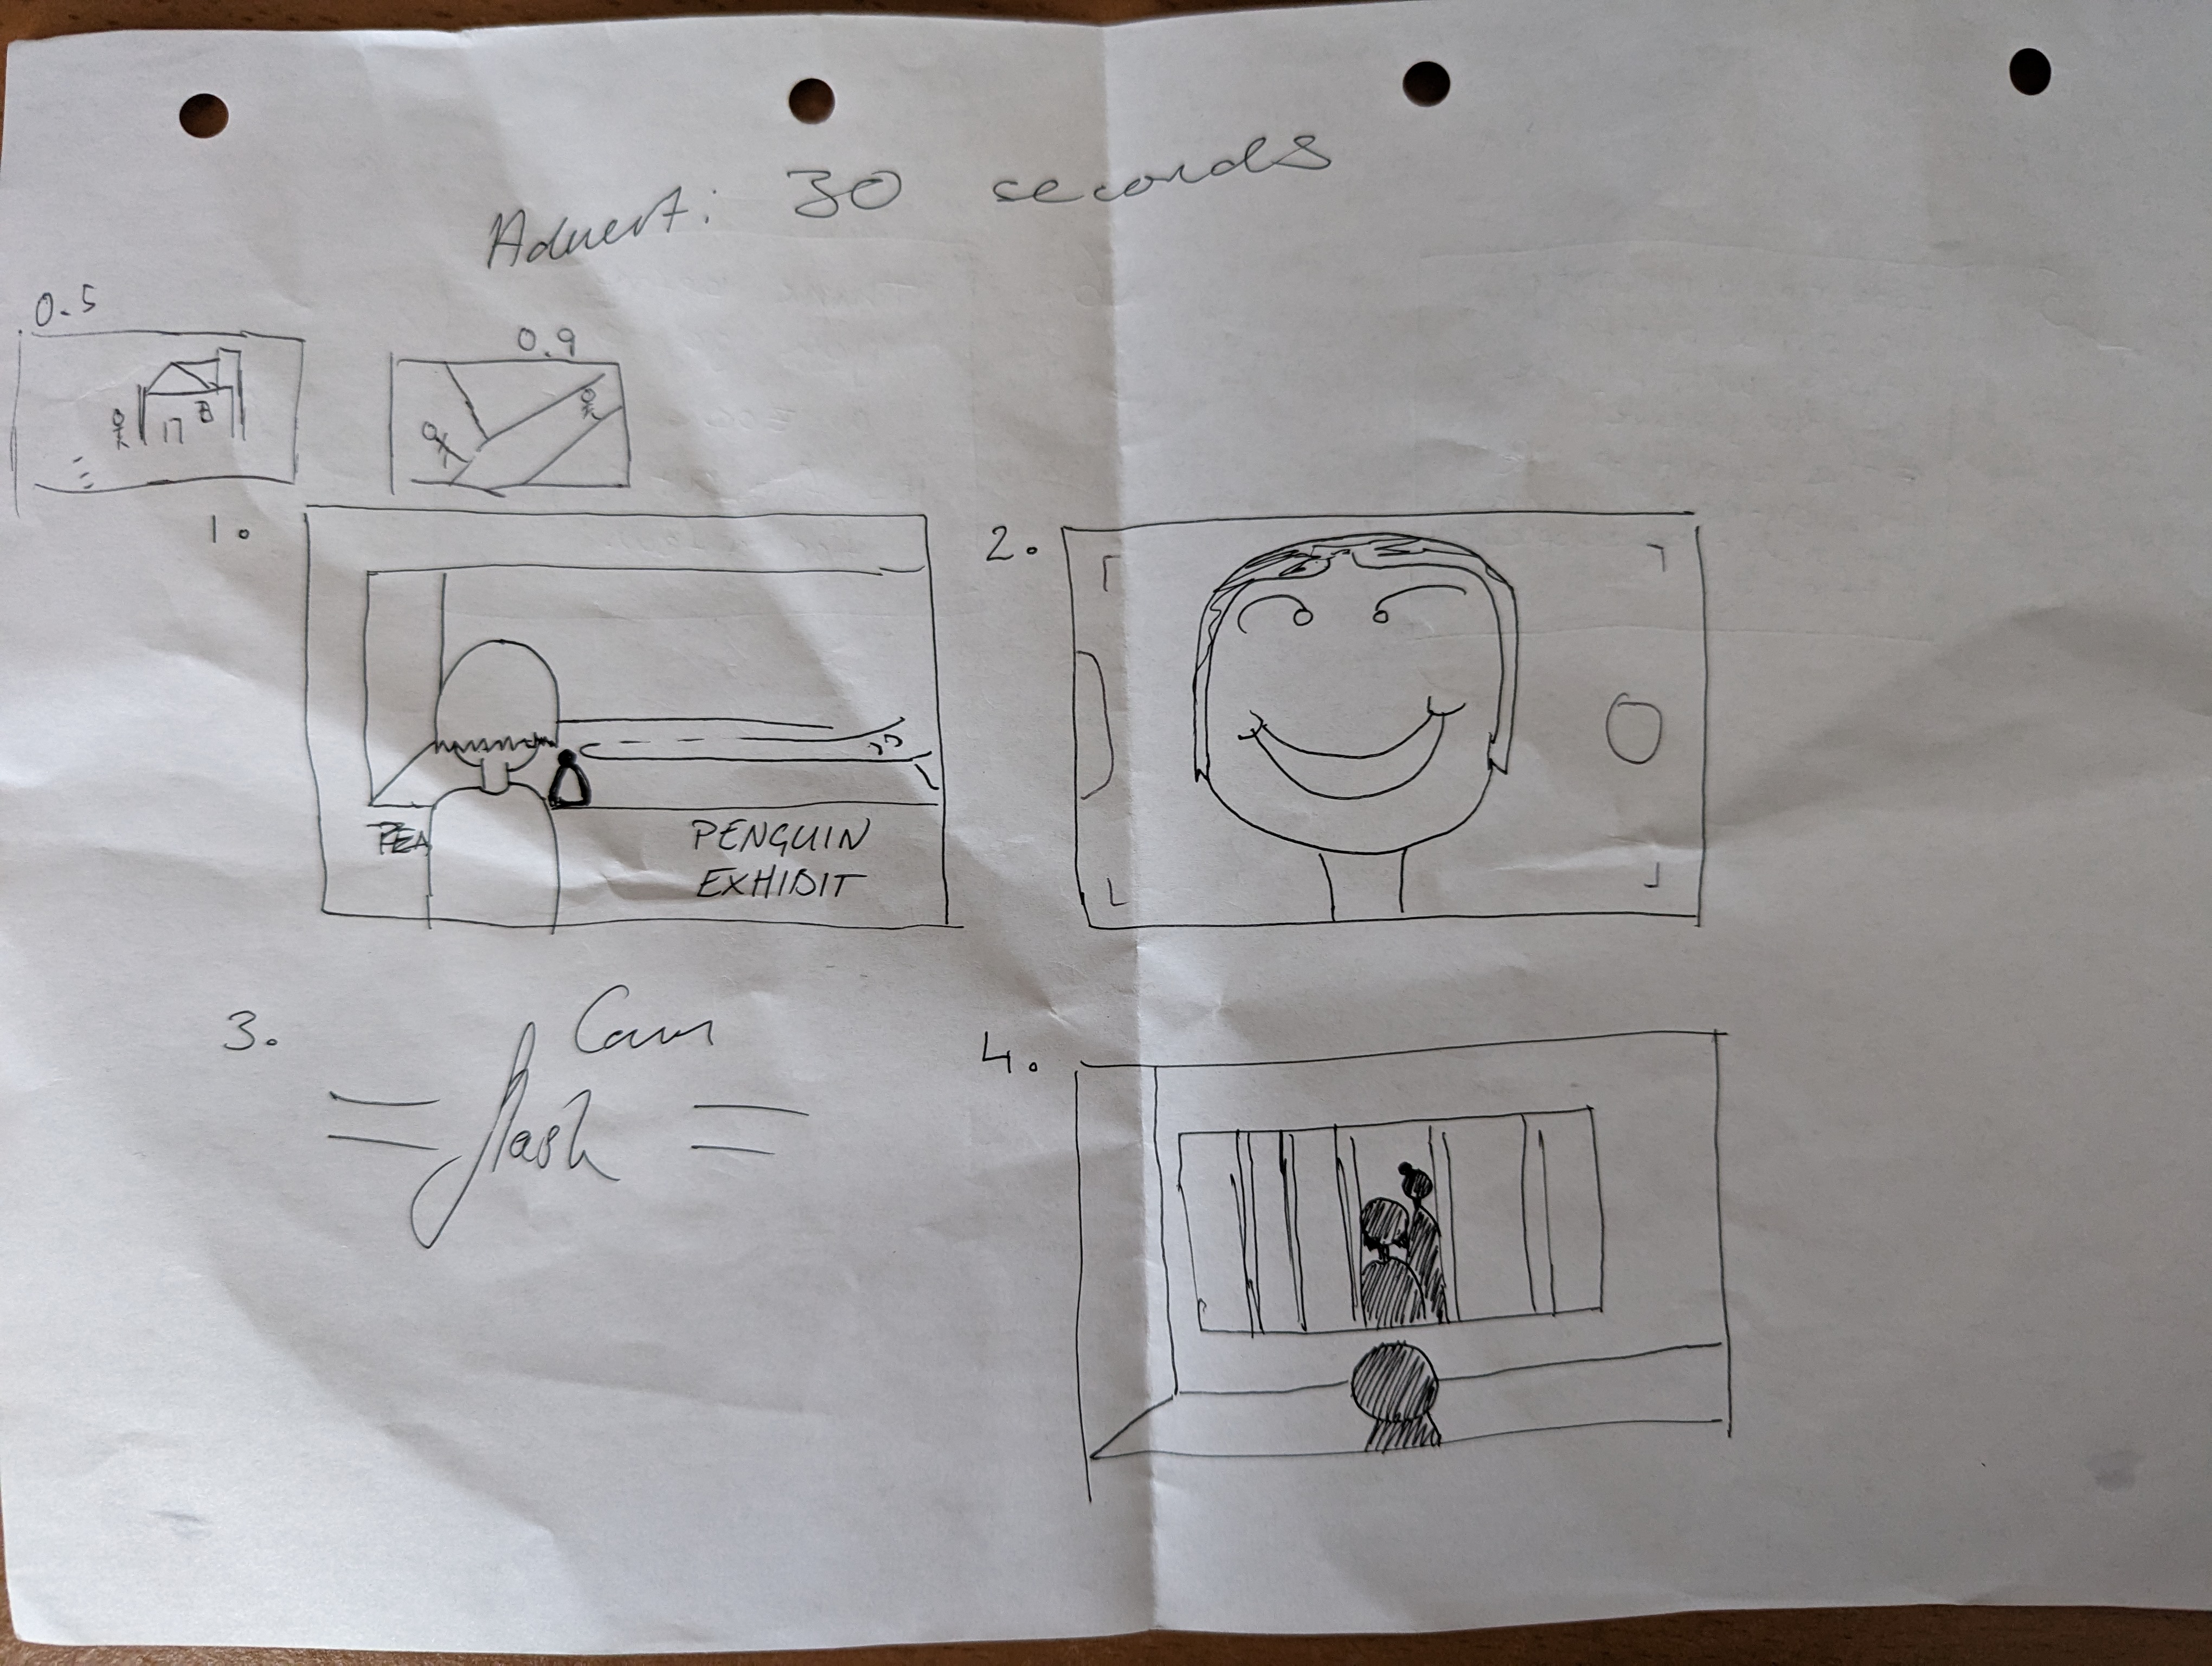 Advert: 30 seconds
0.5
0.9
1.
PEA
PENGUIN
EXHIBIT
2.
3.
Cam
flash
4.